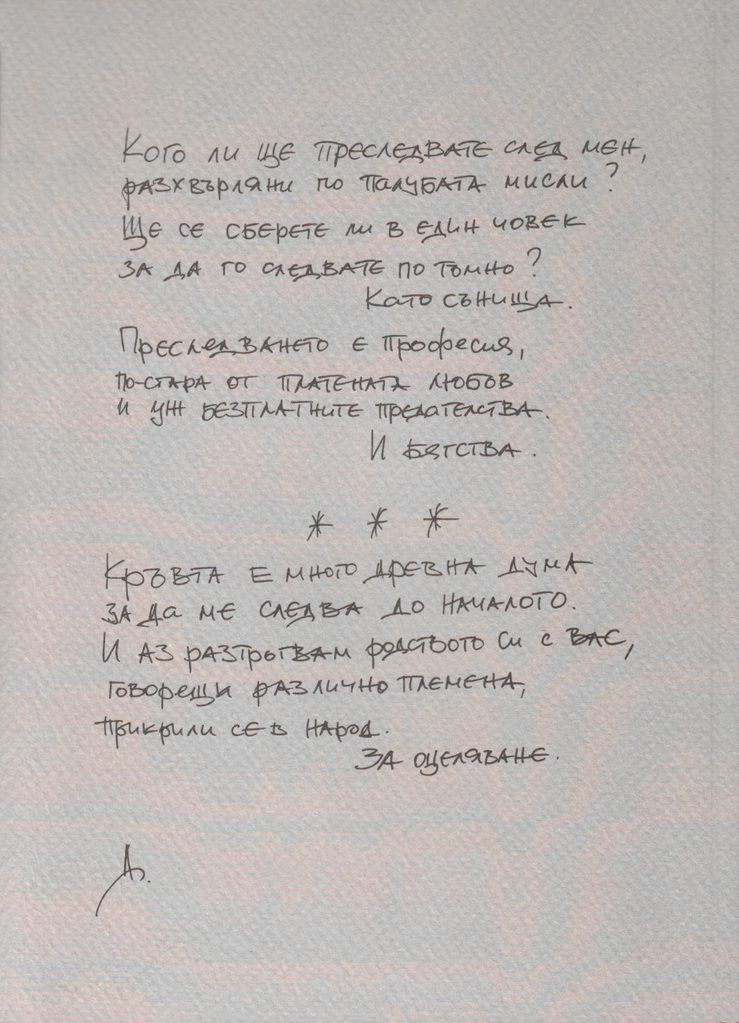 Кого ли ще преследвате след мен,
разхвърляни по палубата мисли?
Ще се сберете ли в един човек
за да го следвате по тъмно?
Като сънища.
Преследването е професия,
по-стара от платената любов
и уж безплатните предателства.
И бягства.
* * *
Кръвта е много древна дума
за да ме следва до началото.
И аз разтрогвам родството си с вас,
говорещи различно племена,
прикрили се в народ.
За оцеляване.
А.